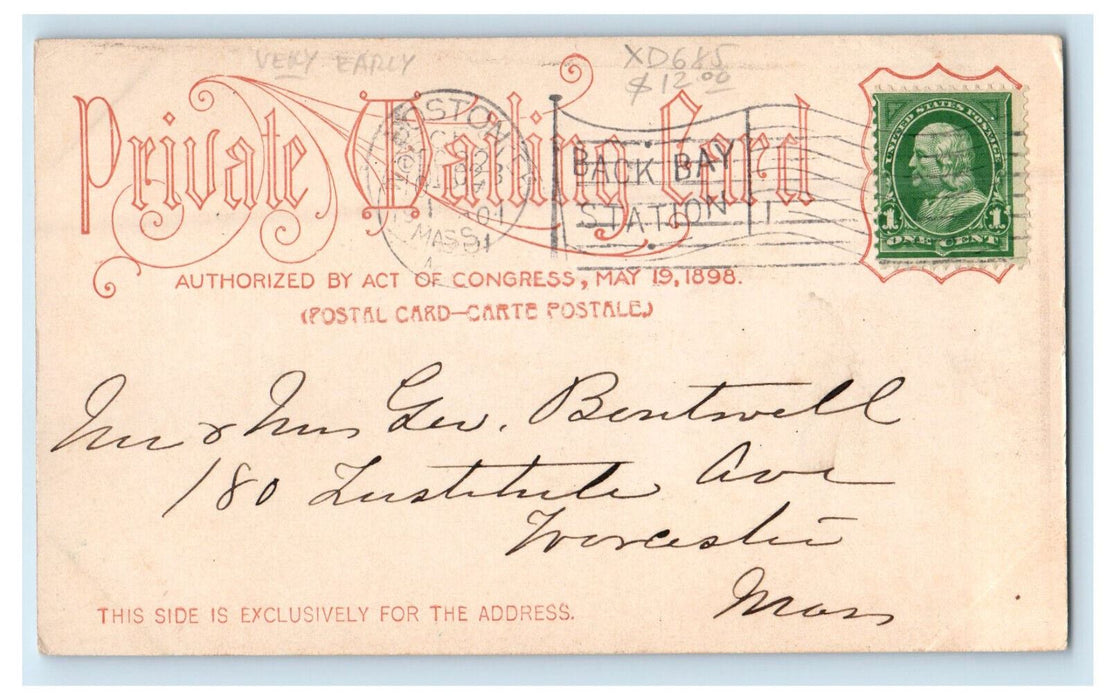 VERY EARLY
XD685
$12.00
Private Mailing Card
BOSTON
MASS.
BACK BAY
STATION
1
UNITED STATES POSTAGE
1 1
ONE CENT
AUTHORIZED BY ACT OF CONGRESS, MAY 19, 1898.
(POSTAL CARD—CARTE POSTALE)
Mr & Mrs Geo. Boutwell
180 Institute Ave
Worcester
Mass
THIS SIDE IS EXCLUSIVELY FOR THE ADDRESS.